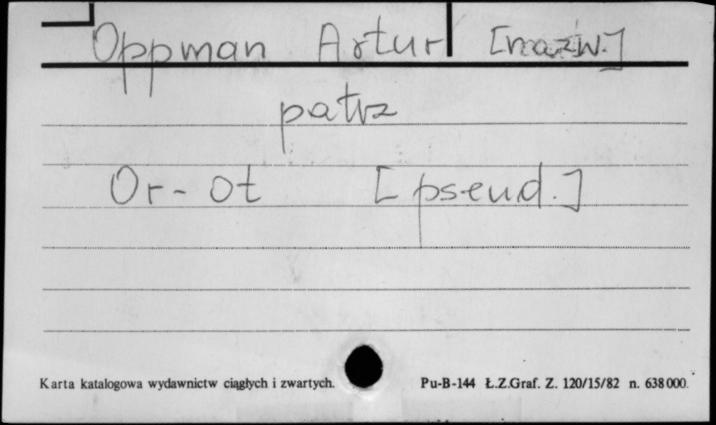 Oppman Artur [nazw.]
patrz
Or-Ot [pseud.]
Karta katalogowa wydawnictw ciągłych i zwartych. Pu-B-144 Ł.Z.Graf. Z. 120/15/82 n. 638000.